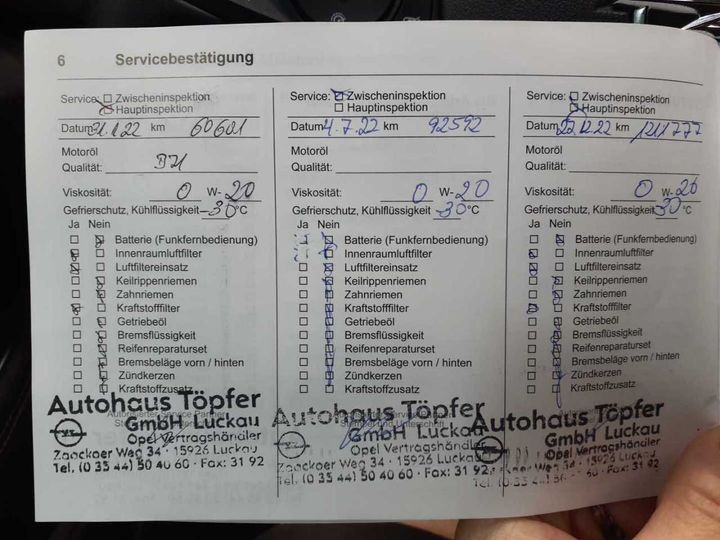 6 Servicebestätigung
Service: Zwischeninspektion
Hauptinspektion
Datum 21.1.22 km 60601
Motoröl
Qualität:
Viskosität: 0 W- 20
Gefrierschutz, Kühlflüssigkeit -30 °C
Ja Nein
Batterie (Funkfernbedienung)
Innenraumluftfilter
Luftfiltereinsatz
Keilrippenriemen
Zahnriemen
Kraftstofffilter
Getriebeöl
Bremsflüssigkeit
Reifenreparaturset
Bremsbeläge vorn / hinten
Zündkerzen
Kraftstoffzusatz
Autohaus Töpfer
GmbH Luckau
Opel Vertragshändler
Zaackoer Weg 34 · 15926 Luckau
Tel. (0 35 44) 50 40 60 · Fax: 31 92
Service: Zwischeninspektion
Hauptinspektion
Datum 4.7.22 km 92592
Motoröl
Qualität:
Viskosität: 0 W- 20
Gefrierschutz, Kühlflüssigkeit -30 °C
Ja Nein
Batterie (Funkfernbedienung)
Innenraumluftfilter
Luftfiltereinsatz
Keilrippenriemen
Zahnriemen
Kraftstofffilter
Getriebeöl
Bremsflüssigkeit
Reifenreparaturset
Bremsbeläge vorn / hinten
Zündkerzen
Kraftstoffzusatz
Autohaus Töpfer
GmbH Luckau
Opel Vertragshändler
Zaackoer Weg 34 · 15926 Luckau
Tel. (0 35 44) 50 40 60 · Fax: 31 92
Service: Zwischeninspektion
Hauptinspektion
Datum 22.12.22 km 121777
Motoröl
Qualität:
Viskosität: 0 W- 20
Gefrierschutz, Kühlflüssigkeit -30 °C
Ja Nein
Batterie (Funkfernbedienung)
Innenraumluftfilter
Luftfiltereinsatz
Keilrippenriemen
Zahnriemen
Kraftstofffilter
Getriebeöl
Bremsflüssigkeit
Reifenreparaturset
Bremsbeläge vorn / hinten
Zündkerzen
Kraftstoffzusatz
Autohaus Töpfer
GmbH Luckau
Opel Vertragshändler
Weg 34 · 15926 Luckau
60 · Fax: 31 92